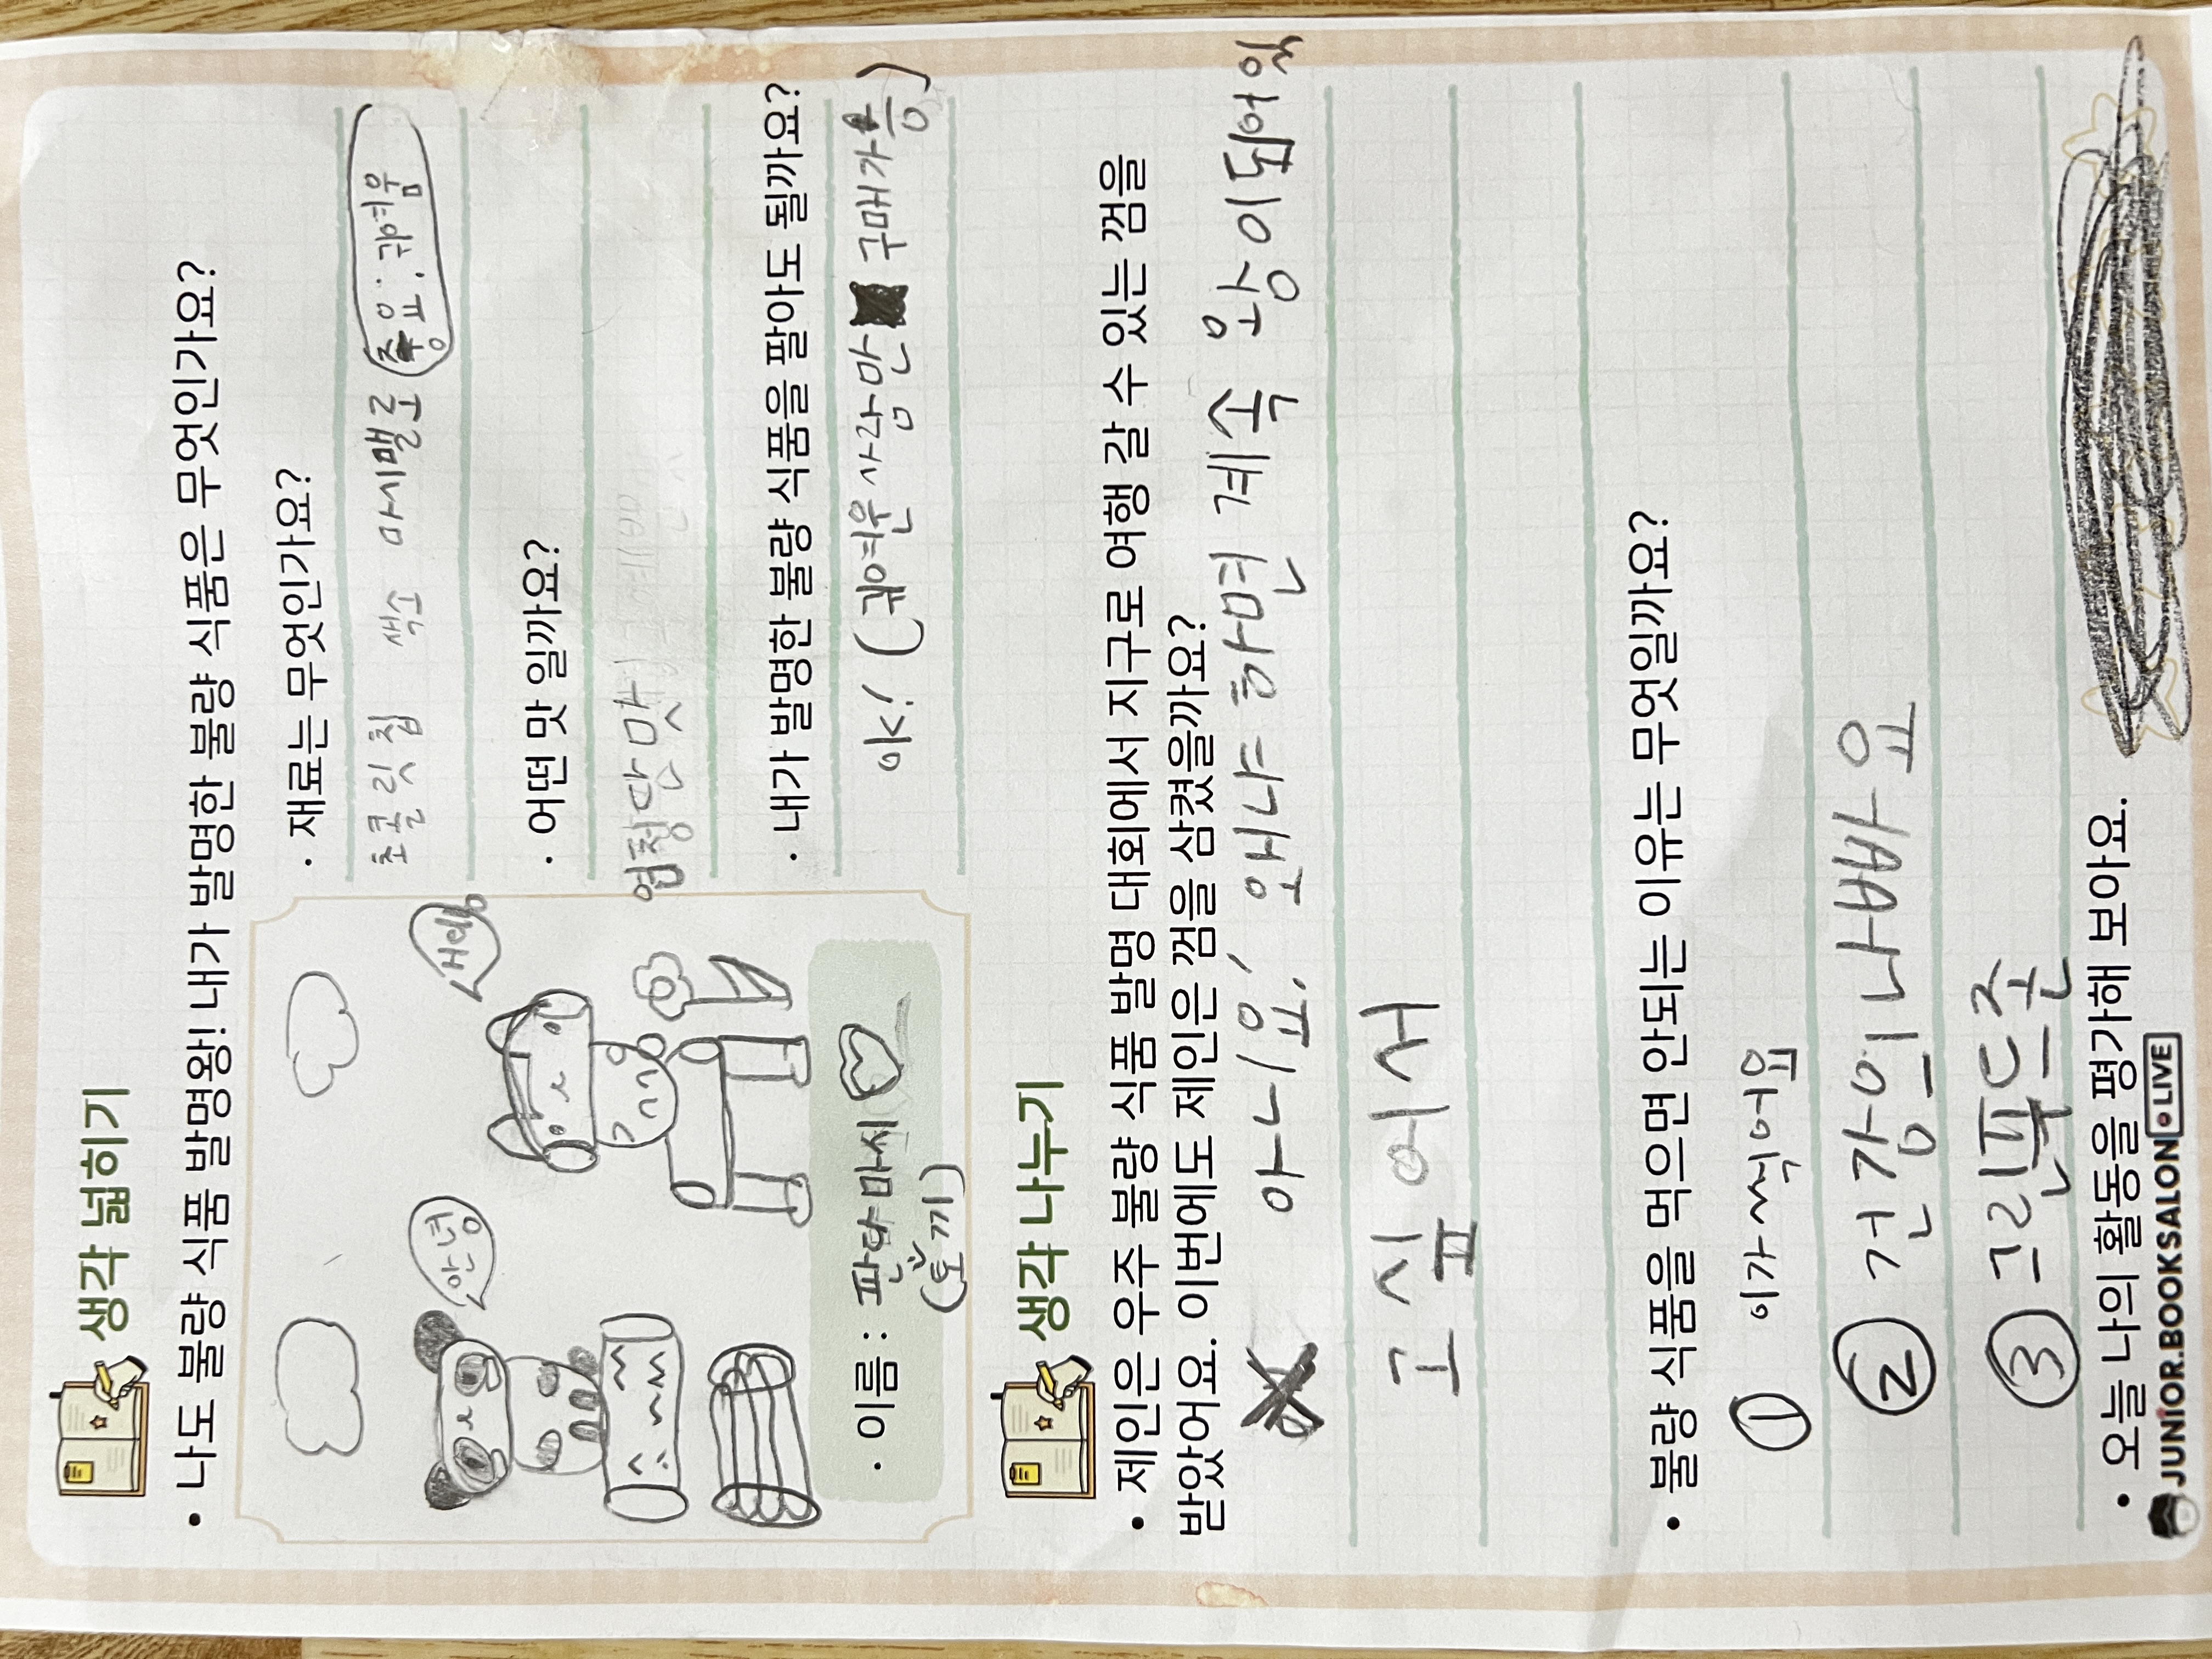 생각 넓히기
• 나도 불량 식품 발명왕! 내가 발명한 불량 식품은 무엇인가요?
안녕
Hello
• 이름 : 판다마시
(토끼)
• 재료는 무엇인가요?
초콜릿칩 색소 마시멜로 (중요: 귀여움
• 어떤 맛 일까요?
엄청단맛
• 내가 발명한 불량 식품을 팔아도 될까요?
ok! (귀여운 사람만 구매가능)
생각 나누기
• 제인은 우주 불량 식품 발명 대회에서 지구로 여행 갈 수 있는 껌을
받았어요. 이번에도 제인은 껌을 삼켰을까요?
아니요, 왜냐하면 계속 왕이되어있
고싶어서
• 불량 식품을 먹으면 안되는 이유는 무엇일까요?
① 이가썩어요
② 건강에나빠요
③ 그린푸드존
• 오늘 나의 활동을 평가해 보아요.
JUNIOR.BOOKSALON LIVE